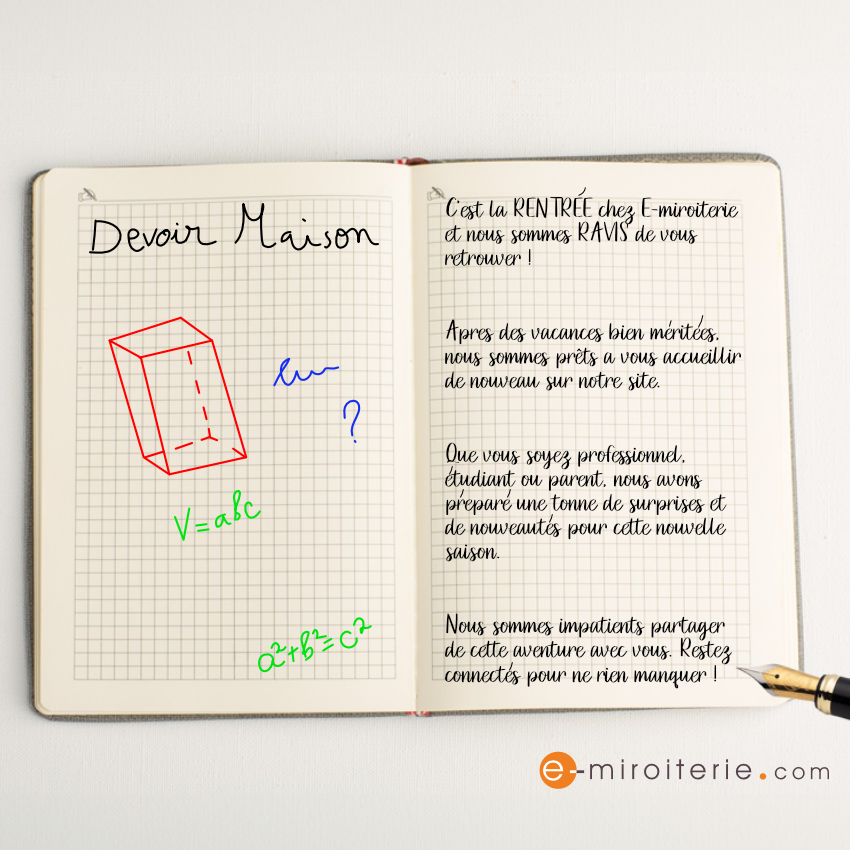 Devoir Maison
?
V=abc
a²+b²=c²
C'est la RENTRÉE chez E-miroiterie
et nous sommes RAVIS de vous
retrouver !
Apres des vacances bien méritées,
nous sommes prêts a vous accueillir
de nouveau sur notre site.
Que vous soyez professionnel,
étudiant ou parent, nous avons
préparé une tonne de surprises et
de nouveautés pour cette nouvelle
saison.
Nous sommes impatients partager
de cette aventure avec vous. Restez
connectés pour ne rien manquer !
e-miroiterie.com